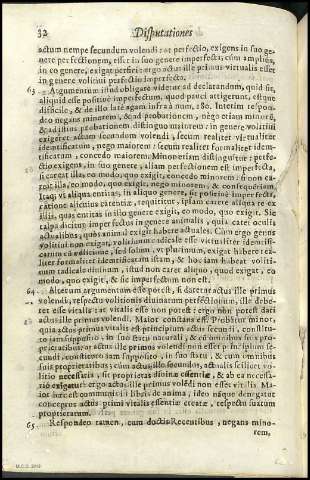 32 Disputationes
actum nempe secundum volendi: at perfectio, exigens in suo ge-
nere perfectionem, esset in suo genere imperfecta; cum amplius,
in eo genere, exigat perfici: ergo actus ille primus virtualis esset
in genere volitivi perfectio imperfecta.
63 Argumentum istud obligare videtur ad declarandum, quid sit,
aliquid esse positive imperfectum, quod pauci attigerunt, estque
difficile, & de illo late agam infra à num. 180. Interim respon-
deo negans minorem, & ad probationem, nego etiam minorem,
& ad istius probationem distinguo maiorem: in genere volitivi
exigeret actum secundum volendi, secum realiter virtualiter
identificatum, nego maiorem: secum realiter formaliter iden-
tificatum, concedo maiorem. Minorem etiam distinguo: perfe-
ctio exigens, in suo genere, aliam perfectionem est imperfecta,
si careat illa, eo modo, quo exigit, concedo minorem: si non ca-
reat illa, eo modo, quo exigit, nego minorem, & consequentiam.
Itaq; vt aliqua entitas, in aliquo genere, sit positive imperfecta,
ratione alicuius carentiæ, requiritur, ipsam carere aliqua re ex
illis, quas entitas in illo genere exigit, eo modo, quo exigit. Sic
talpa dicitur imperfecta in genere animalis, quia caret oculis
actualibus, quos animal exigit habere actuales. Cum ergo genus
volitivi non exigat, volitionem radicale esse virtualiter identifi-
catum cum volitione, sed solum, vt plurimum, exigat habere rea-
liter formaliter identificatam istam, & hoc iam habeat voliti-
uum radicale divinum, istud non caret aliquo, quod exigat, eo
modo, quo exigit, & sic imperfectum non est.
64 Alterum argumentum esse potest, si daretur actus ille primus
volendi, respectu volitionis divinarum perfectionum, ille debe-
ret esse vitalis: at vitalis esse non potest: ergo non potest dari
actus ille primus volendi. Maior constans est. Probatur minor,
quia actus primus vitalis est principium actus secundi, constitu-
to iam supposito, in suo statu naturali, & cum omnibus suis pro-
prietatibus: at actus ille primus volendi non esset principium se-
cundi, constituto iam supposito, in suo statu, & cum omnibus
suis proprietatibus; cum actus ille secundus, actualis scilicet vo-
litio necessaria, sit proprietas divinæ essentiæ, & ab ea necessa-
riò exigatur: ergo actus ille primus volēdi non esset vitalis. Ma-
ior hæc est communis in libris de anima, ideo namque denegatur
conceptus actus primi vitalis essentiæ creatæ, respectu suarum
proprietatum.
65 Respondeo tamen, cum doctis Recentibus, negans mino-
rem,